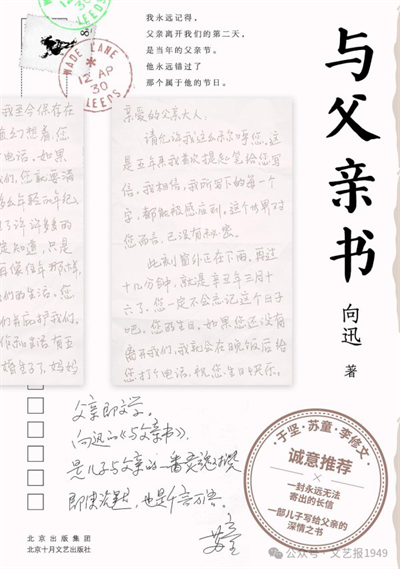 我永远记得，
父亲离开我们的第二天，
是当年的父亲节。
他永远错过了
那个属于他的节日。
WADE LANE
12 AP
30
LEEDS
与父亲书
向迅 著
我至今保存在
幻想着，您
电话，如果
我们，您就要满
么年轻的年纪
了许许多多的
知道，只是
再像往年那样
们的生活，您
亲爱的父亲大人：
请允许我这么称呼您，这
是五年来我首次提起笔给您写
信，我相信，我所写下的每一个
字，都能被感应到，这个世界对
您而言，已没有秘密。
此刻窗外正在下雨，再过
十几分钟，就是辛丑年三月十
六了，您一定不会忘记这个日子
吧，您的生日，如果您还没有
离开我们，我就会在晚饭后给
您打个电话，祝您生日快乐。
父亲即文学。
向迅的《与父亲书》，
是儿子与父亲的一番灵魂
即使没，也是千言万
于坚·苏童·李修文
诚意推荐
一封永远无法
寄出的长信
一部儿子写给父亲的
深情之书
北京出版集团
北京十月文艺出版社
公众号·文艺报1949